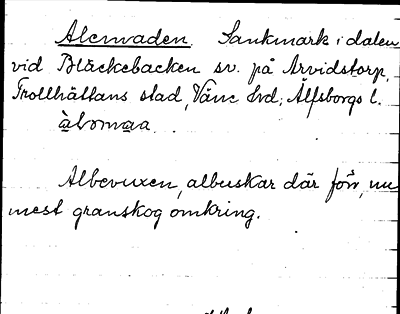 Alemaden. Sankmark i dalen
vid Bläckebacken sv. på Arvidstorp,
Trollhättans stad, Väne hd; Älfsborgs l.
Albevuxen, albuskar där förr, nu
mest granskog omkring.